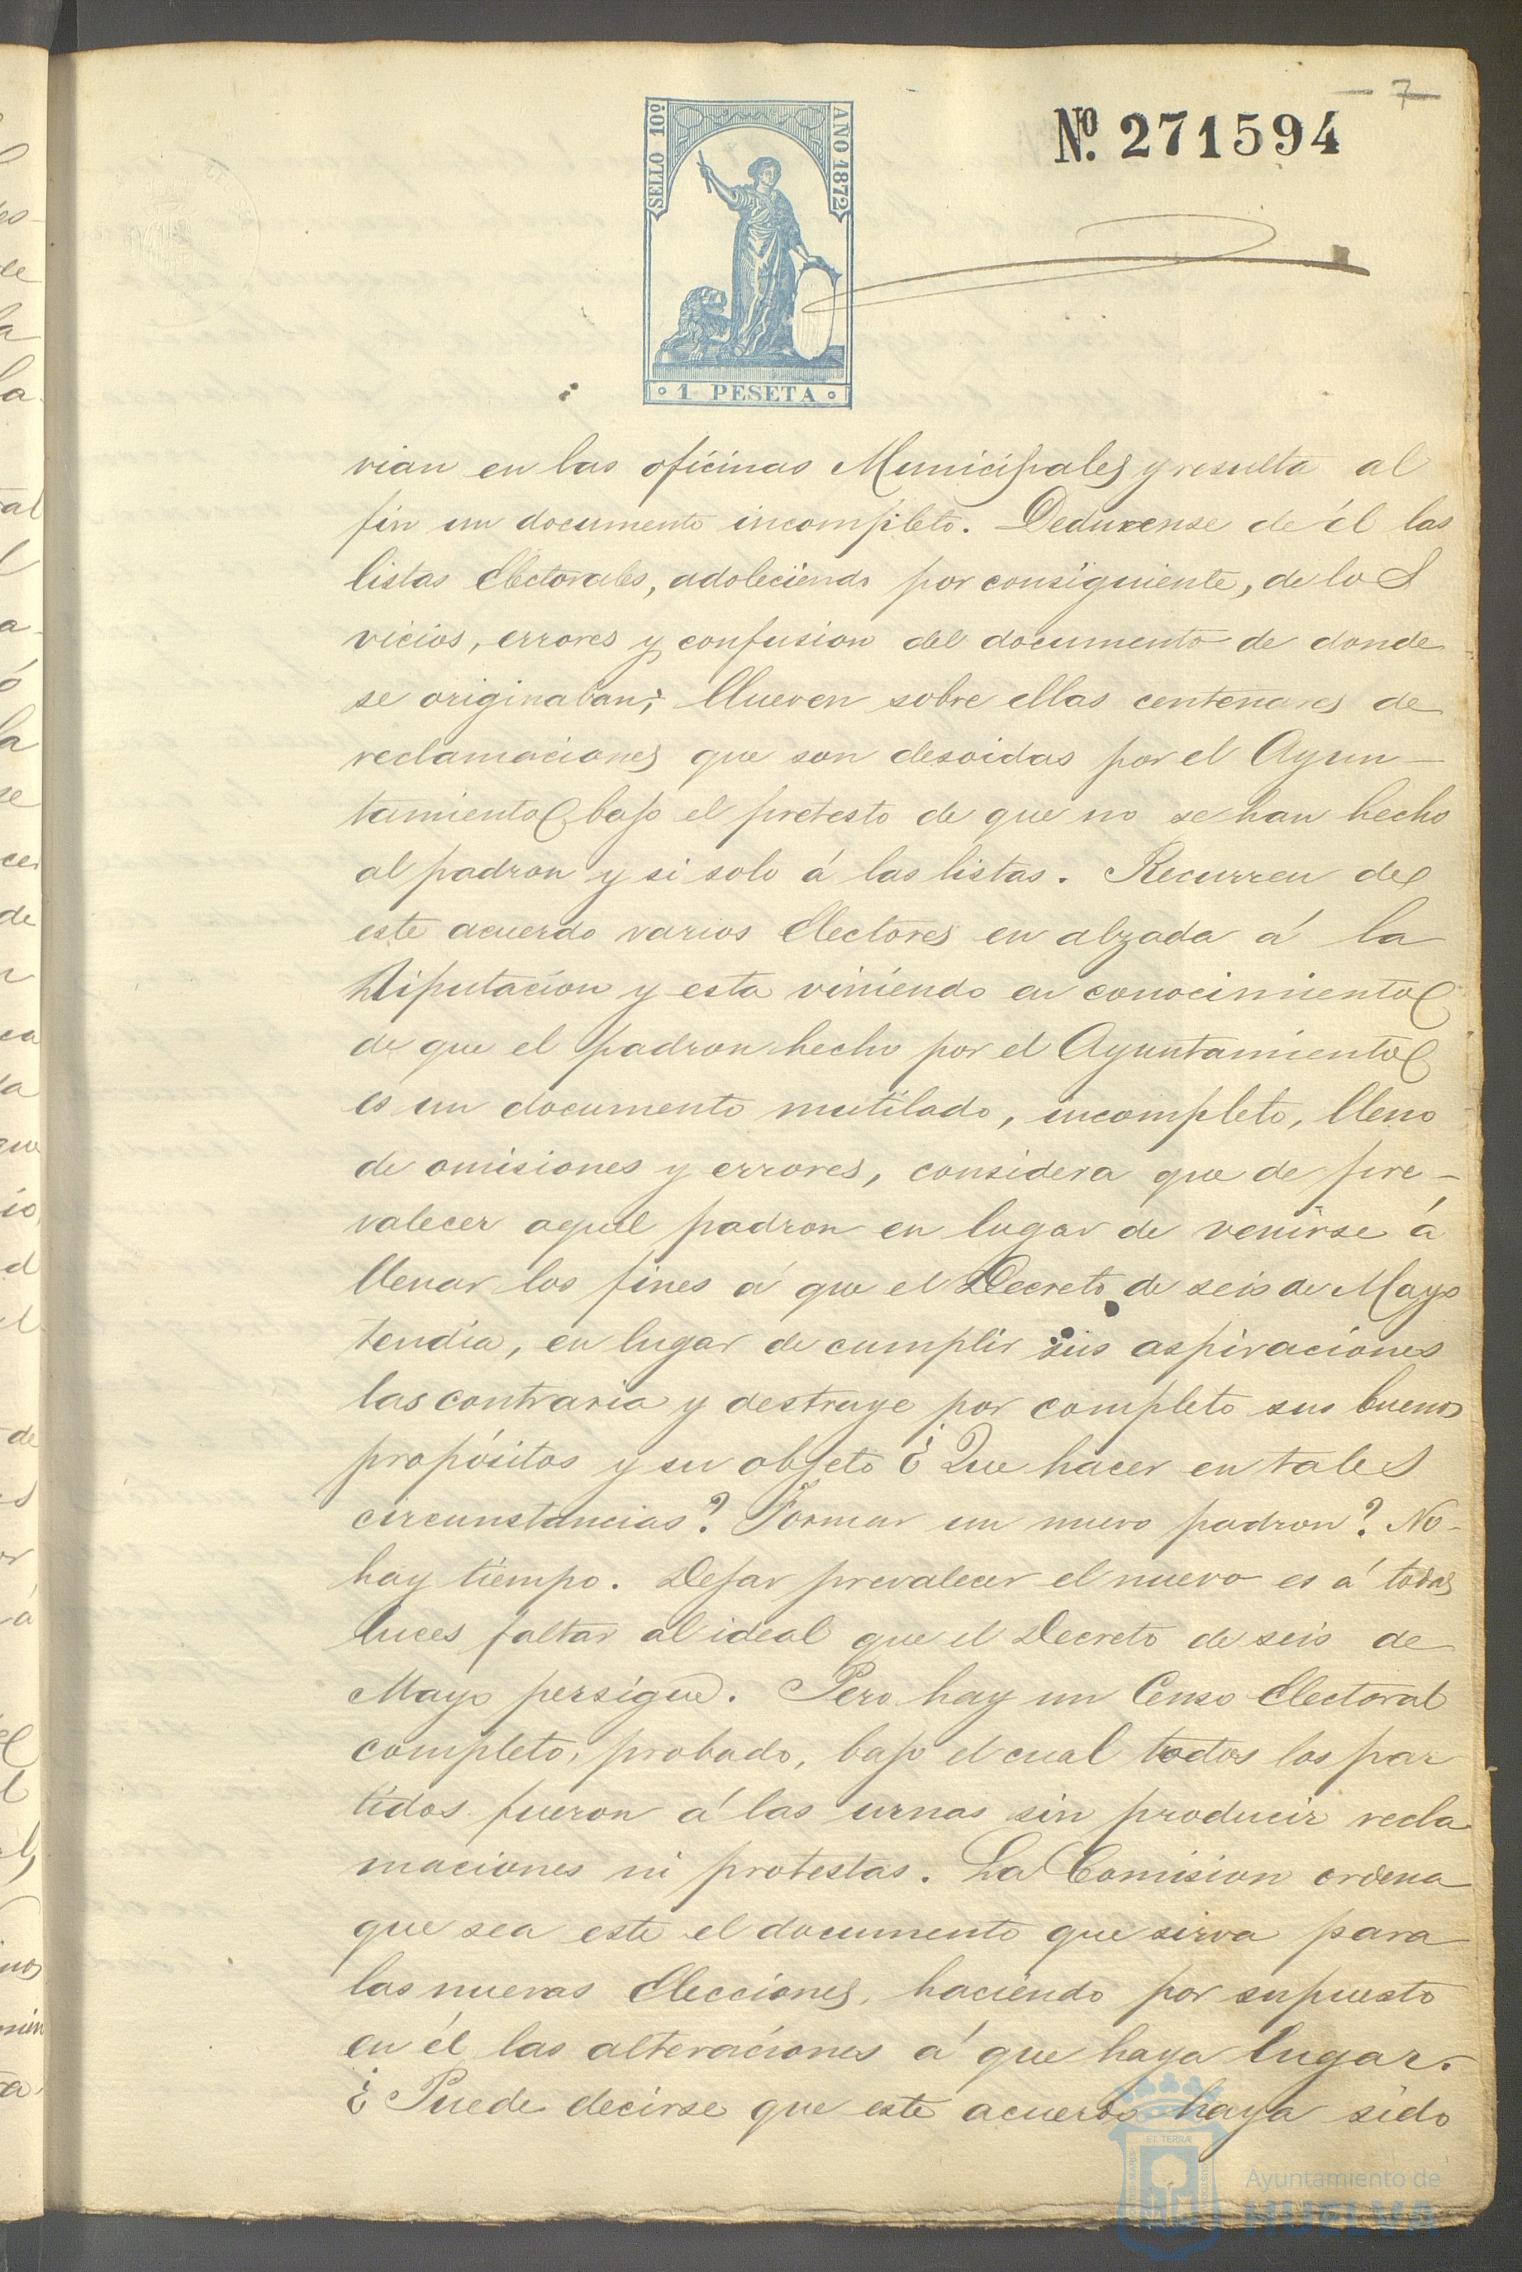 7
Nº. 271594
SELLO 10º
AÑO 1872
1 PESETA
vian en las oficinas Municipales y resulta al
fin un documento incompleto. Deducense de él las
listas electorales, adoleciendo por consiguiente, de los
vicios, errores y confusion del documento de donde
se originaban; llueven sobre ellas centenares de
reclamaciones que son desoidas por el Ayun-
tamiento bajo el pretesto de que no se han hecho
al padron y si solo á las listas. Recurren de
este acuerdo varios Electores en alzada á la
Diputacion y esta viniendo en conocimiento
de que el padron hecho por el Ayuntamiento
es un documento mutilado, incompleto, lleno
de omisiones y errores, considera que de pre-
valecer aquel padron en lugar de venirse á
llenar los fines á que el Decreto de seis de Mayo
tendia, en lugar de cumplir sus aspiraciones
las contraria y destruye por completo sus buenos
propósitos y su objeto ¿Que hacer en tales
circunstancias? Formar un nuevo padron? No
hay tiempo. Dejar prevalecer el nuevo es á todas
luces faltar al ideal que el Decreto de seis de
Mayo persigue. Pero hay un Censo Electoral
completo, probado, bajo el cual todos los par
tidos fueron á las urnas sin producir recla
maciones ni protestas. La Comision ordena
que sea este el documento que sirva para
las nuevas Elecciones, haciendo por supuesto
en él las alteraciones á que haya lugar.
¿Puede decirse que este acuerdo haya sido
Ayuntamiento de
HUELVA